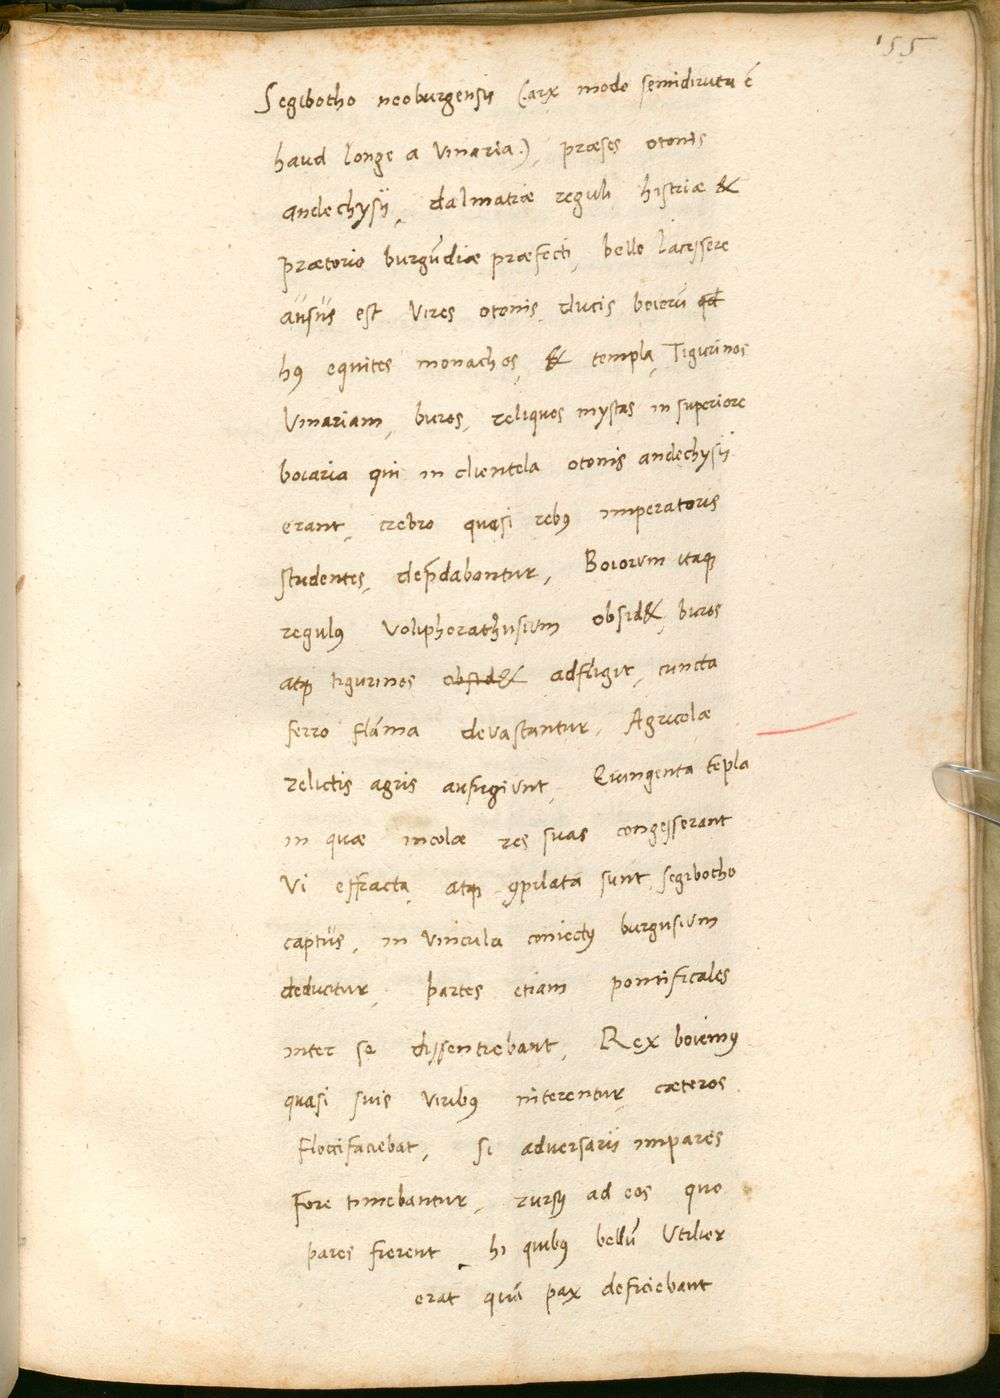 155
Segibotho neoburgensis (arx modo semidiruta ē
haud longe a Vinaria.), præses otonis
andechysii, dalmatiæ reguli histriæ &
prætorio burgūdiæ præfecti, bello lacessere
ausus est Vires otonis ducis boiorū qd
hꝰ equites monachos, & templa, Tigurinos
Vinariam, buros, reliquos mystas in superiore
boiaria qui in clientela otonis andechysii
erant, crebro quasi rebꝰ imperatoris
studentes, dep̄dabantur, Boiorum itaqꝫ
regulꝰ Voliphorathusium obsid&, buros
atqꝫ tigurinos obsid& adfligit, cuncta
ferro flāma devastantur, Agricolæ
relictis agris aufugiunt, Quingenta tēpla
in quæ incolæ res suas congesserant
Vi effracta, atqꝫ ꝯpilata sunt, segibotho
captus, in Vincula coniectꝰ burgusium
deducitur, partes etiam pontificales
inter se dissentiebant, Rex boiemꝰ
quasi suis Viribꝰ niterentur cæteros
floccifaciebat, Si adversarii impares
fore timebantur, rursꝰ ad eos quo
pares fierent, hi quibꝰ bellū Vtilier
erat quā pax deficiebant